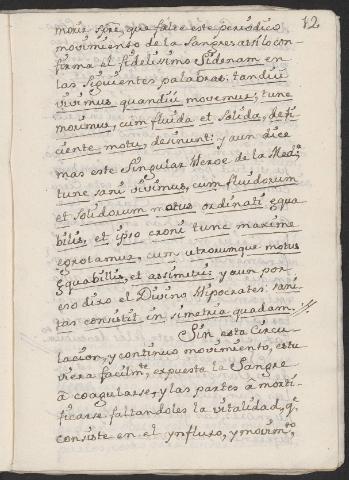 12
morir sp̃re, que falte este periódico
movimiento de la Sangre; assi lo con-
firma el fidelissimo Sidenam en
las siguientes palabras: tandiu
vivimus, quandiu movemur; tunc
morimur, cum fluida et solida, defi-
ciente motu, desinunt; y aun dice
mas este singular Heroe de la Med.ª
tunc sani vivimus, cum fluidorum
et solidorum motus ordinati equa-
bilis, et ipso croni tunc maxime
egrotamus, cum utrorumque motus
Equabilis, et assimetrii; y aun por
eso dixo el Divino Hipocrates: sani-
tas consistit in simetria quadam.
Sin esta Circu-
lacion, y continuo movimiento, estu-
viera facilm.te expuesta la Sangre
à coagularse, y las partes a morti-
ficarse faltandoles la vitalidad, q.e
consiste en el ynfluxo, y movim.to